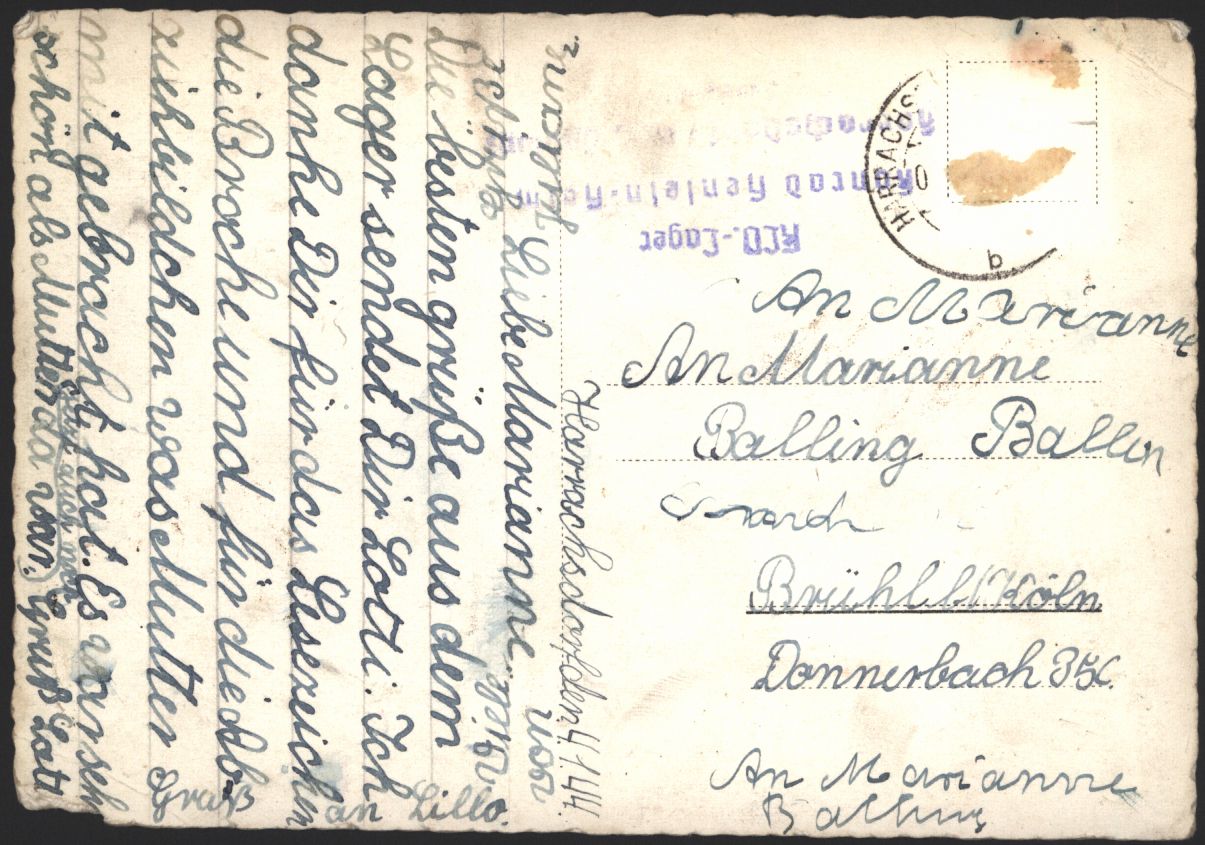 Harrachsdorf den 4.1.44.
Liebe Marianne.
Die besten grüße aus dem
Lager sendet Dir Lotti. Ich
danke Dir für das Lesezeichen
die Broche und für die
ziehbildchen was Mutter
mit gebracht hat. Es war seh
schön als Mutter da war. Gruß Lott
Gruß an Lillo.
KLV.-Lager
Konrad Henlein-
HARRACHS
b
An Marianne
An Marianne
Balling Ballin
Brühl b/Köln
Donnerbach 35
An Marianne
Balling